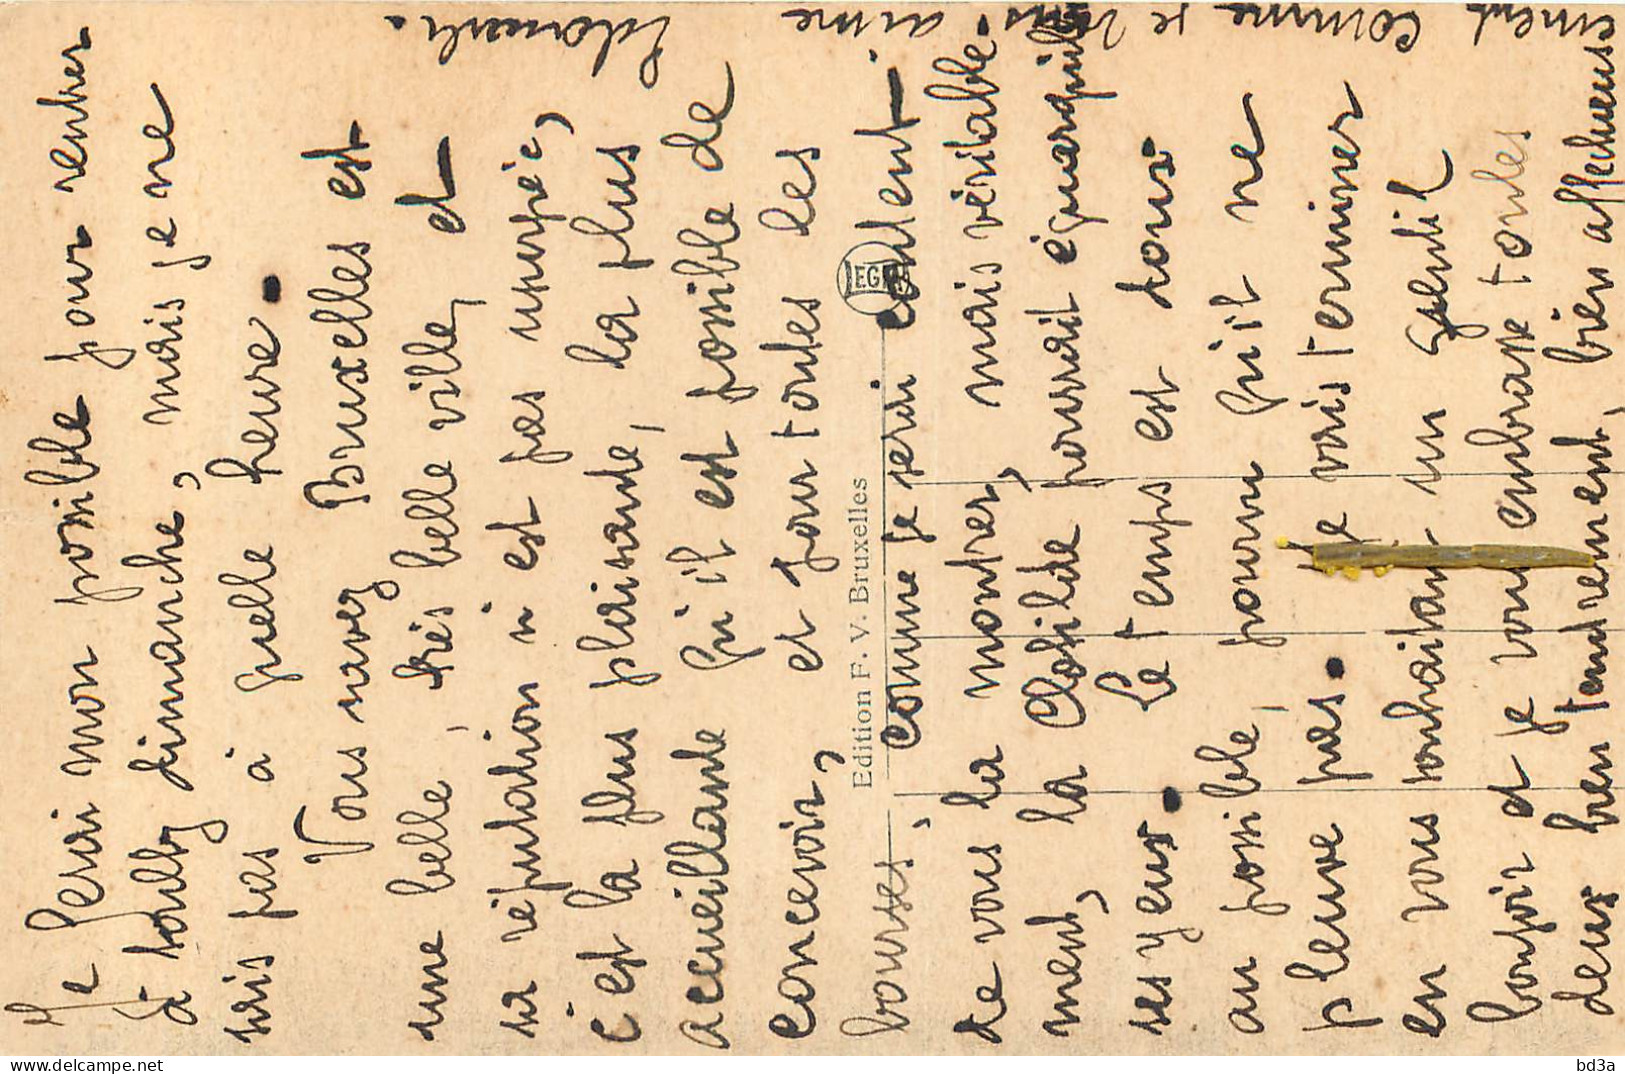 Je ferai mon possible pour rentrer
à dimanche, mais je ne
sais pas à quelle heure.
Vous savez Bruxelles est
une belle, très belle ville, et
sa réputation n'est pas usurpée,
c'est la plus plaisante, la plus
accueillante qu'il est possible de
concevoir, et pour toutes les
bourses, comme je serai content
de vous la montrer, mais véritable-
ment, la Clotilde pourrait écarquiller
ses yeux. Le temps est doux
au possible, pourvu qu'il ne
pleuve pas. Je vais terminer
en vous souhaitant un gentil
bonsoir et je vous embrasse toutes
deux bien tendrement, bien affectueus
ement comme je vous aime
Edition F. V. Bruxelles
bd3a